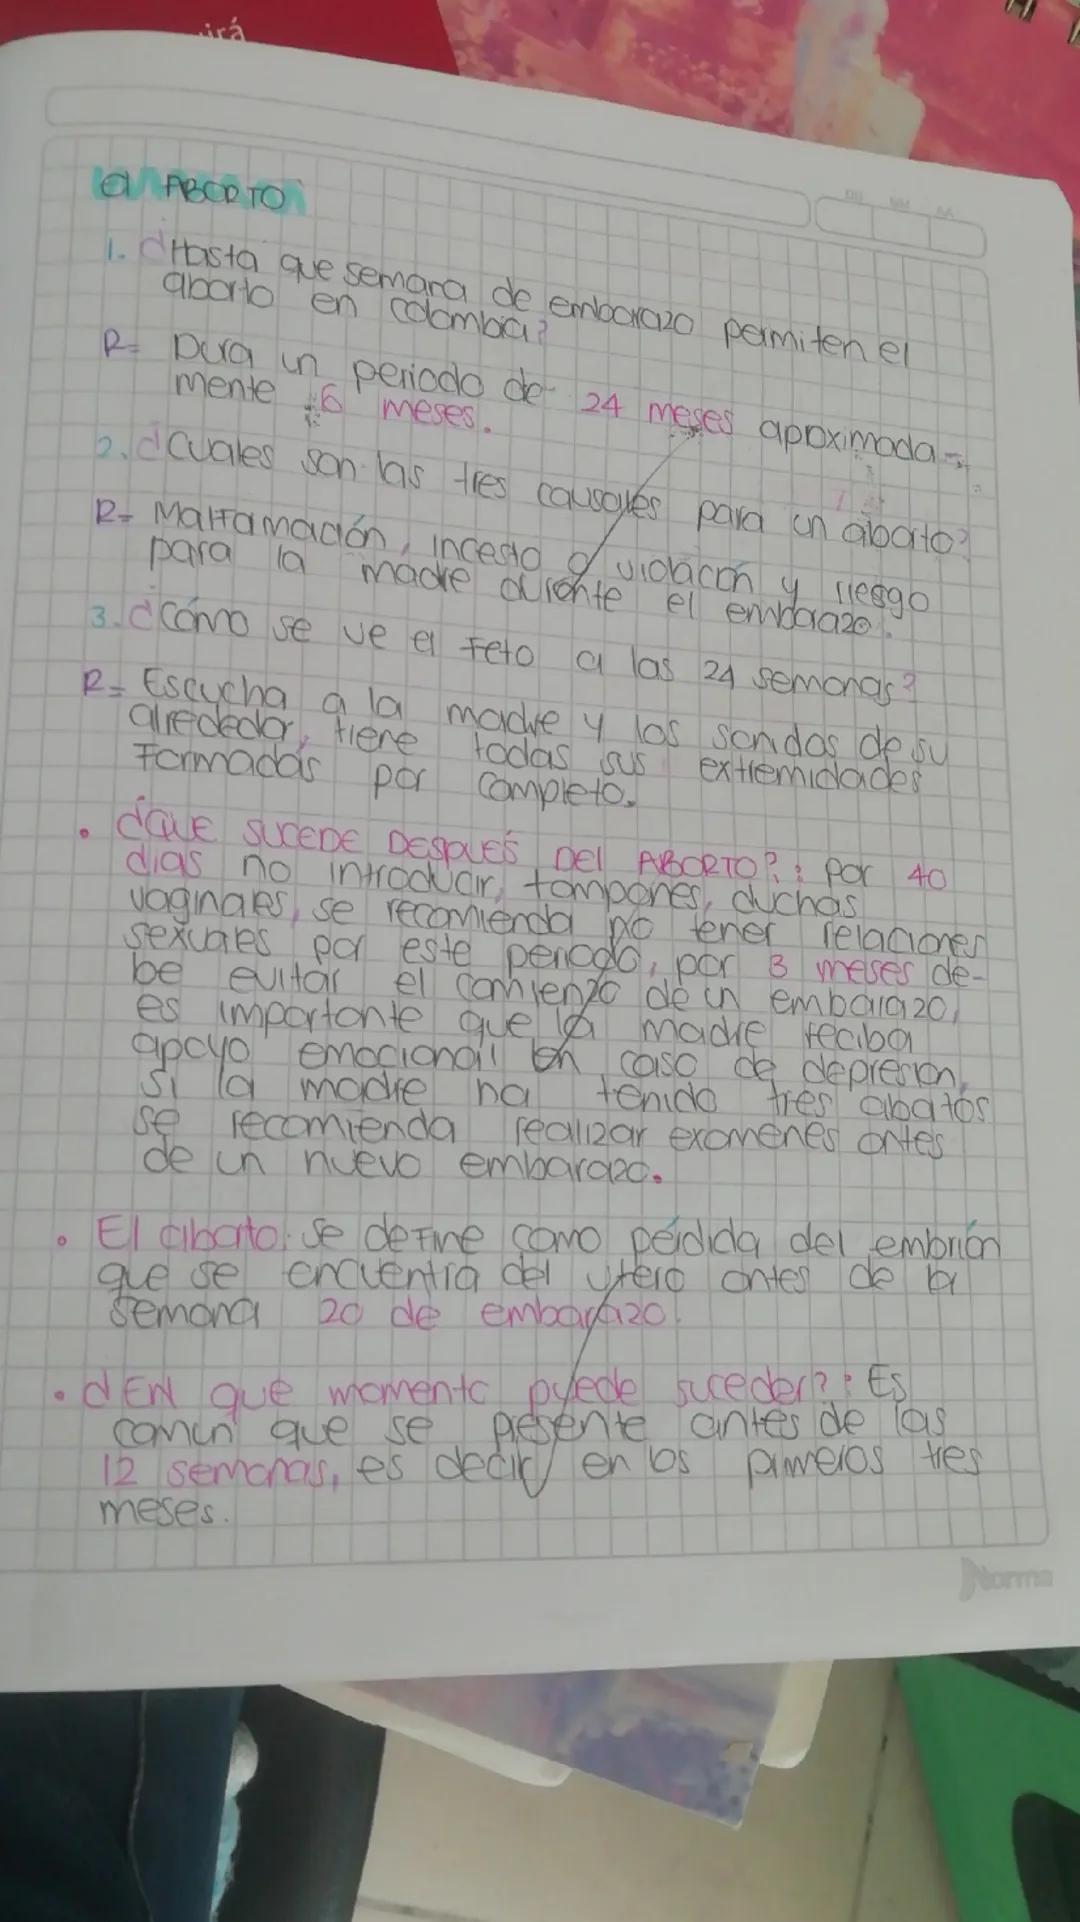 irá
DD MM AA
El ABORTO
1. ¿Hasta que semana de embarazo permiten el
aborto en colombia?
R= Dura un periodo de 24 meses aproximada-
mente 6 meses.
2. ¿Cuales son las tres causales para un aborto?
R= Malformación, incesto o violación y riesgo
para la madre durante el embarazo.
3. ¿Cómo se ve el feto a las 24 semanas?
R= Escucha a la madre y los sonidos de su
alrededor, tiene todas sus extremidades
formadas por completo.
• ¿QUE SUCEDE DESPUÉS DEL ABORTO?: por 40
dias no introducir, tampones, duchas
vaginales, se recomienda no tener relaciones
sexuales por este periodo, por 3 meses de-
be evitar el comienzo de un embarazo,
es importante que la madre reciba
apoyo emocional en caso de depresion,
si la madre ha tenido tres abortos
se recomienda realizar examenes antes
de un nuevo embarazo.
• El aborto se define como pérdida del embrión
que se encuentra del utero antes de la
semana 20 de embarazo.
• ¿EN que momento puede suceder?: Es
común que se presente antes de las
12 semanas, es decir, en los primeros tres
meses.
Norma